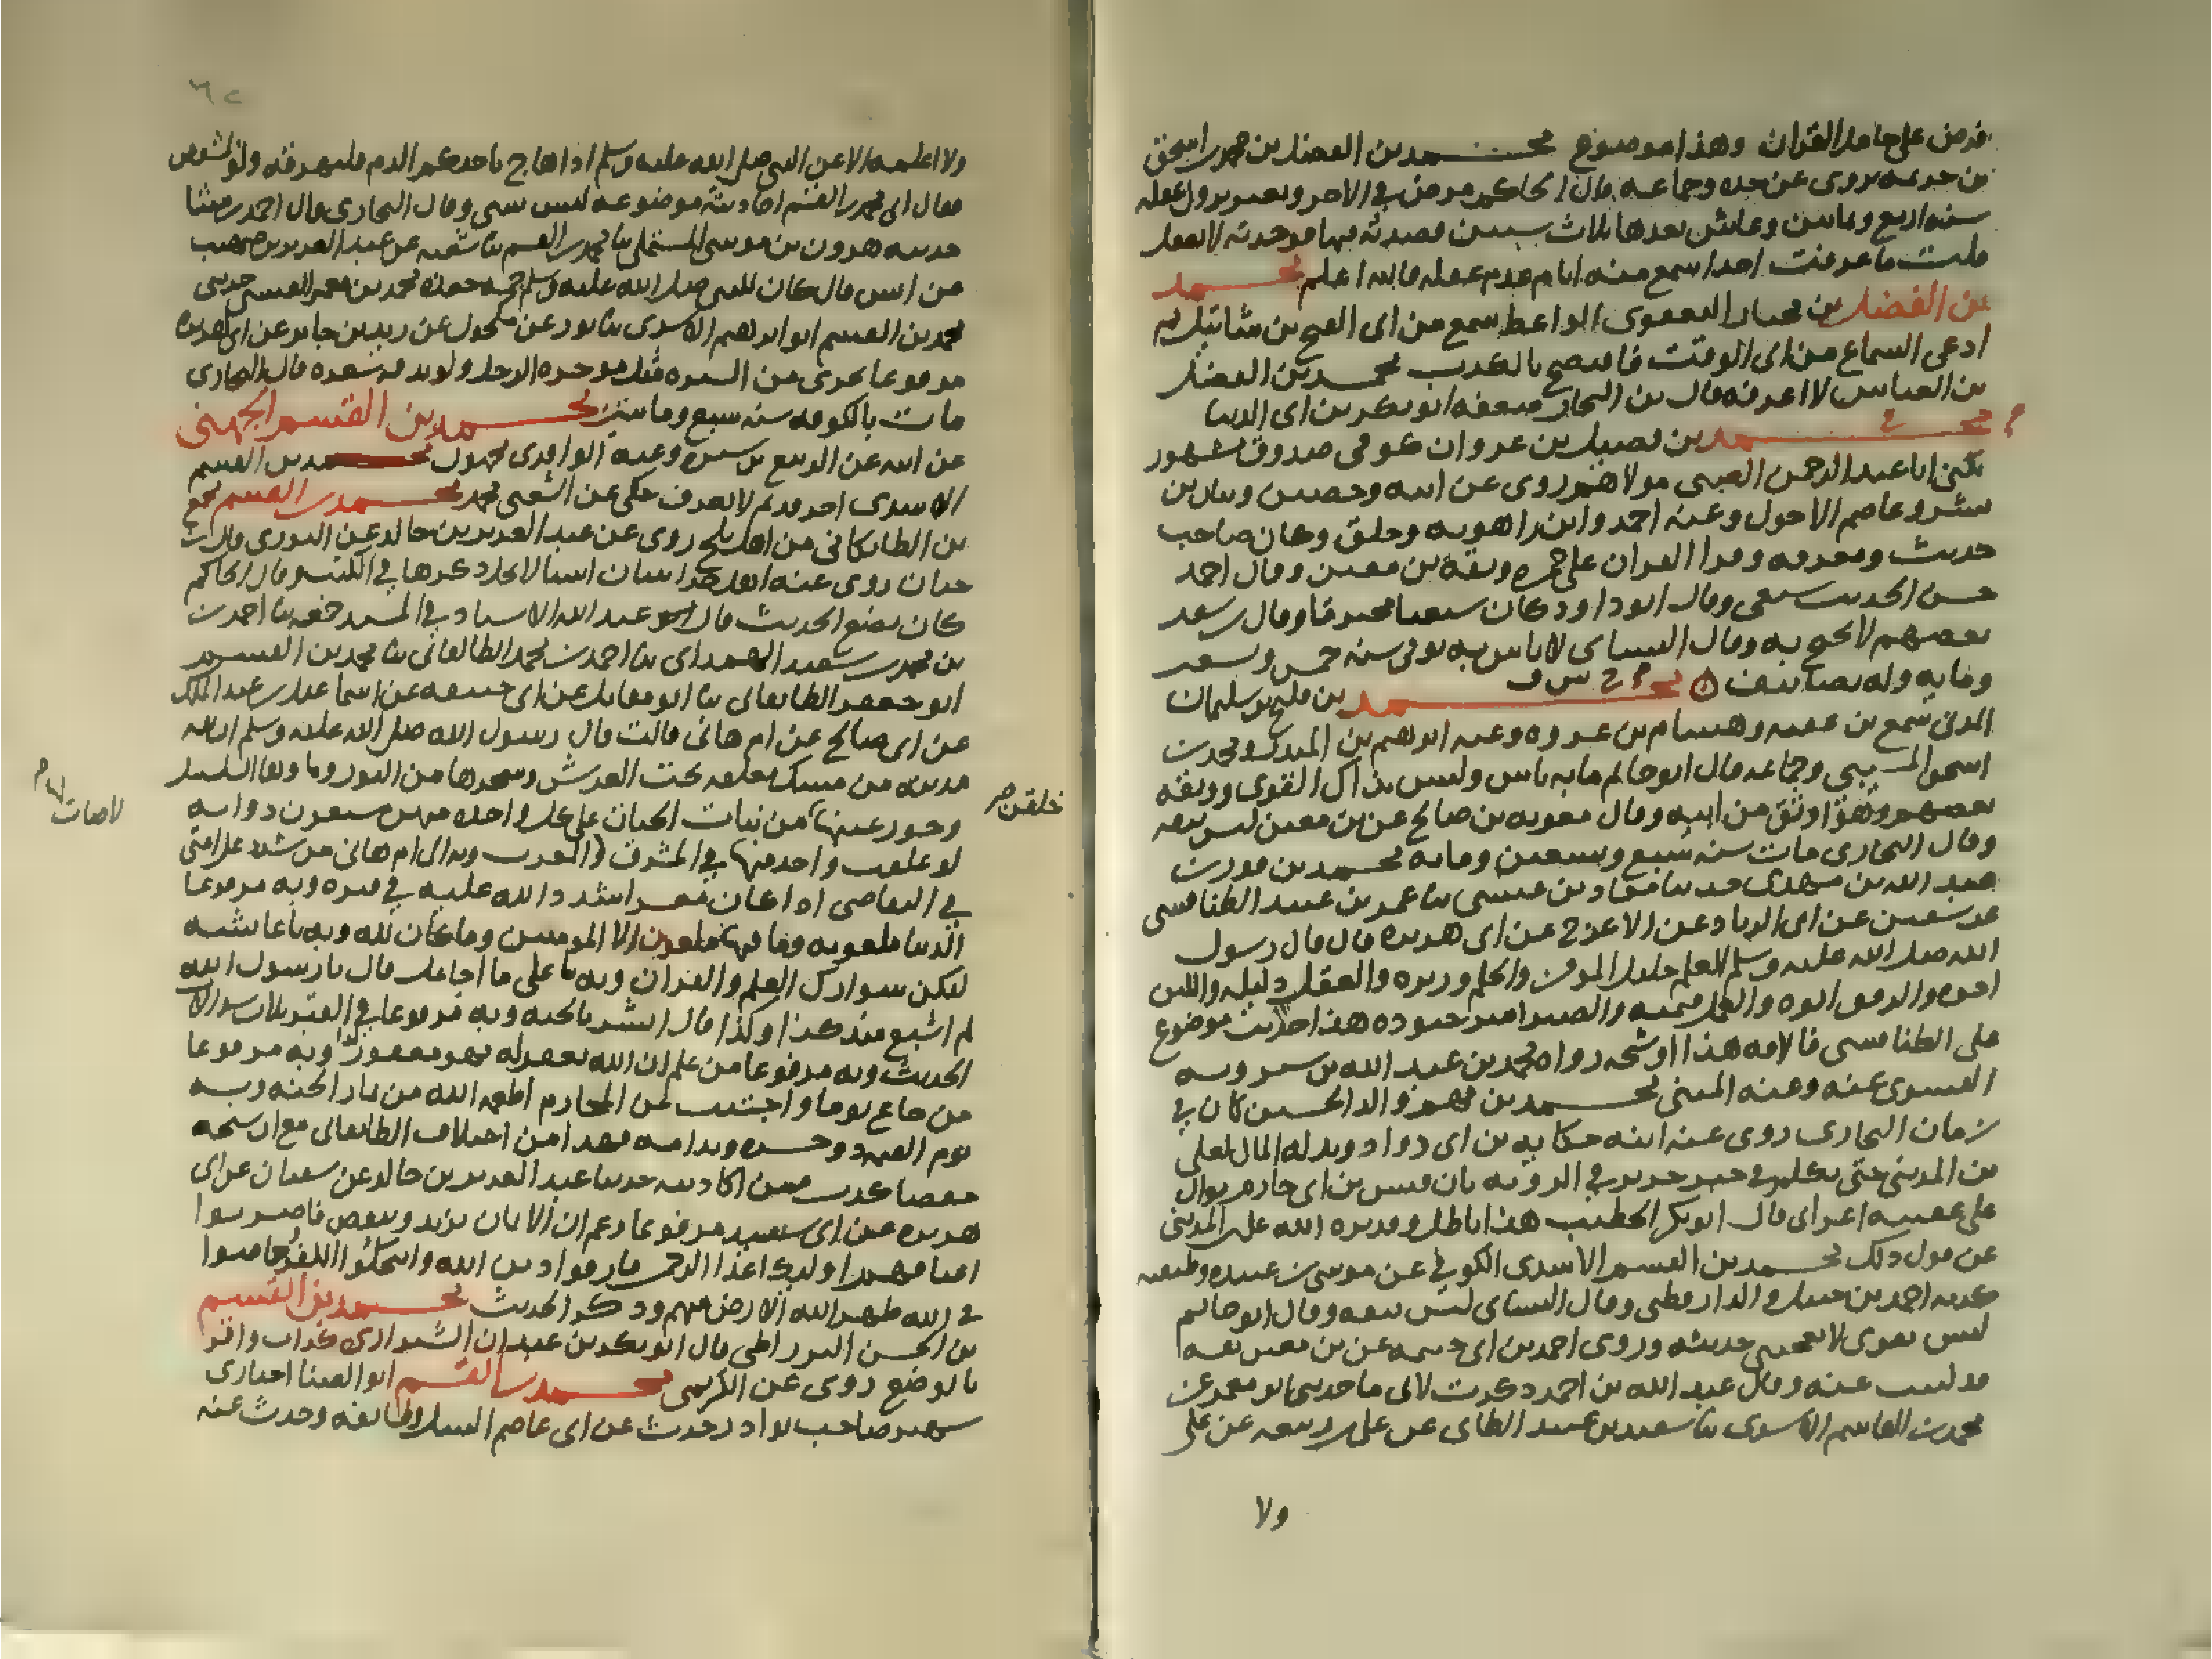 فرض على حامل القران وهذا موضوع محمد بن الفضل بن محمد بن اسحق
بن خزيمة روى عن جده وجماعة قال الحاكم مرض في الاخر وتغير بزوال عقله
سنة اربع وثمانين وعاش بعدها ثلاث سنين قصدته فيها فوجدته لا يعقل
قلت ما عرفت احدا سمع منه ايام عدم عقله فالله اعلم محمد
بن الفضل بن بختيار اليعقوبي الواعظ سمع من ابي الفتح بن شاتيل ثم
ادعى السماع من ابي الوقت فافتضح بالكذب محمد بن الفضل
بن العباس لا اعرفه قال بن النجار ضعفه ابو بكر بن ابي الدنيا
محمد بن فضيل بن غزوان كوفي صدوق مشهور
يكنى ابا عبد الرحمن الضبي مولاهم روى عن ابيه وحصين وبيان بن
بشر وعاصم الاحول وعنه احمد وابن راهويه وخلق وكان صاحب
حديث ومعرفة وقرا القران على حمزة وثقه بن معين وقال احمد
حسن الحديث شيعي وقال ابو داود كان شيعيا محترقا وقال بن سعد
بعضهم لا يحتج به وقال النسائي لا باس به توفي سنة خمس وتسعين
وماية وله تصانيف محمد بن فليح بن سليمان
المدني سمع بن عقبة وهشام بن عروة وعنه ابراهيم بن المنذر ومحمد بن
اسحق المسيبي وجماعة قال ابو حاتم ما به باس وليس بذاك القوي ووثقه
بعضهم وهو اوثق من ابيه وقال معوية بن صالح عن بن معين ليس بثقة
وقال البخاري مات سنة سبع وتسعين وماية محمد بن فور بن
عبد الله بن مهدي حدثنا معاذ بن عيسى ثنا عمر بن عبيد الطنافسي
عن سفين عن ابي الزناد عن الاعرج عن ابي هريرة قال قال رسول
الله صلى الله عليه وسلم العلم خليل المومن والحلم وزيره والعقل دليله واللين
اخوه والرفق ابوه والعمل قيمه والصبر امير جنوده هذا حديث موضوع
على الطنافسي فالافة هذا او شيخه رواه محمد بن عبد الله بن
عنه وعنه محمد بن والد الحسين كان في
زمان البخاري روى عنه ابنه حكاية بن ابي دواد وبذله المال لعلي
بن المديني حتى تكلم في خبر جرير في الروية بان قيس بن ابي حازم بوال
على عقبيه اعرابي قال ابو بكر الخطيب هذا باطل وقد نزه الله علي المديني
عن قول ذلك محمد بن القسم الاسدي الكوفي عن موسى بن عبيدة وطبقته
كذبه احمد بن حنبل والدارقطني وقال النسائي ليس بثقة وقال ابو حاتم
ليس بقوي لا يعجبني حديثه وروى احمد بن ابي خيثمة عن بن معين ثقة
قد كتبت عنه وقال عبد الله بن احمد ذكرت لابي ما حدثني ابو معمر عن
محمد بن القاسم الاسدي ثنا سعيد بن عبيد الطائي عن علي بن ربيعة عن علي
ولا
ولا اعلمه الا عن النبي صلى الله عليه وسلم اذا هاج باحدكم الدم فليهرقه ولو بمشقص
فقال ابي محمد بن القسم احاديثه موضوعة ليس بشي وقال البخاري قال احمد رمينا
حديثه هرون بن موسى المستملي ثنا محمد بن القسم ثنا شعبة عن عبد العزيز بن صهيب
عن انس قال كان للنبي صلى الله عليه وسلم جمة جعدة محمد بن معمر القيسي حدثني
محمد بن القسم ابو ابراهيم الاسدي ثنا ثور عن مكحول عن يزيد بن جابر عن ابي هريرة
مرفوعا يجزي من السترة مثل موخرة الرحل ولو بدقة شعرة قال البخاري
مات بالكوفة سنة سبع ومايتين محمد بن القسم الجهني
عن ابيه عن الربيع بن سبرة وعنه الواقدي مجهول محمد بن القسم
الاسدي اخر قديم لا يعرف حكى عن الشعبي محمد بن القسم بن مجمع
بن الطايكاني من اهل بلخ روى عن عبد العزيز بن خالد عن الثوري قال بن
حبان روى عنه اهل خراسان اشيا لا يحل ذكرها في الكتب وقال الحاكم
كان يضع الحديث قال ابو عبد الله الاستاذ في المسند جمعه ثنا احمد بن
بن محمد بن سعيد الهمداني ثنا احمد بن محمد الطالقاني ثنا محمد بن القسم
ابو جعفر الطايقاني ثنا ابو مقاتل عن ابي حنيفة عن اسماعيل بن عبد الملك
عن ابي صالح عن ام هانى قالت قال رسول الله صلى الله عليه وسلم ان لله
مدينة من مسك معلقة تحت العرش وشجرها من النور وماوها السلسبيل
وحور عينها خلقن من نبات الجنان على كل واحدة منهن سبعون ذوابة
لو علقت واحدة منها في المشرق لاضات المغرب وبه الى ام هانى من شدد على امتي
في التقاضي اذا كان معسرا شدد الله عليه في قبره وبه مرفوعا
الدنيا ملعونة وما فيها ملعون الا المومنين وما كان لله وبه يا عايشة
ليكن سوارك العلم والقران وبه يا علي ما اجاعك قال يا رسول الله
لم اشبع منذ كذا وكذا قال ابشر بالجنة وبه مرفوعا في القبر ثلاث سوال
الحديث وبه مرفوعا من علم ان الله يغفر له فهو مغفور وبه مرفوعا
من جاع يوما واجتنب عن المحارم اطعمه الله من ثمار الجنة وبه
يوم القيمة ذو حسرة وندامة فهذا من اختلاق الطايقاني مع ان شيخه
حفصا كذب ومن اكاذيبه حدثنا عبد العزيز بن خالد عن سفيان عن ابي
هريرة عن ابي سعيد مرفوعا من زعم ان الايمان يزيد وينقص فاضربوا
اعناقهم اوليك اعدا الرحمن فارقوا دين الله وانتحلوا الكفر وخاصموا
في الله طهر الله الارض منهم وذكر الحديث محمد بن القسم
بن الحسن البوراطي قال ابو بكر بن عبدان الشيرازي كذاب واقر
بالوضع روى عن الكريمي محمد بن القسم ابو العينا اخباري
شهير صاحب نوادر حدث عن ابي عاصم النبيل وطايفة وحدث عنه
خلقن صح
لاضات صح